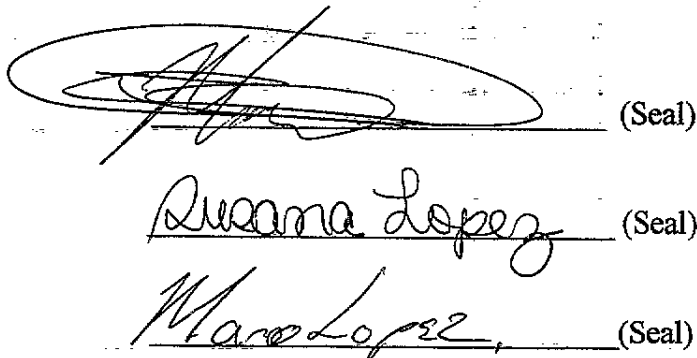 (Seal)
Susana Lopez (Seal)
Lopez, (Seal)